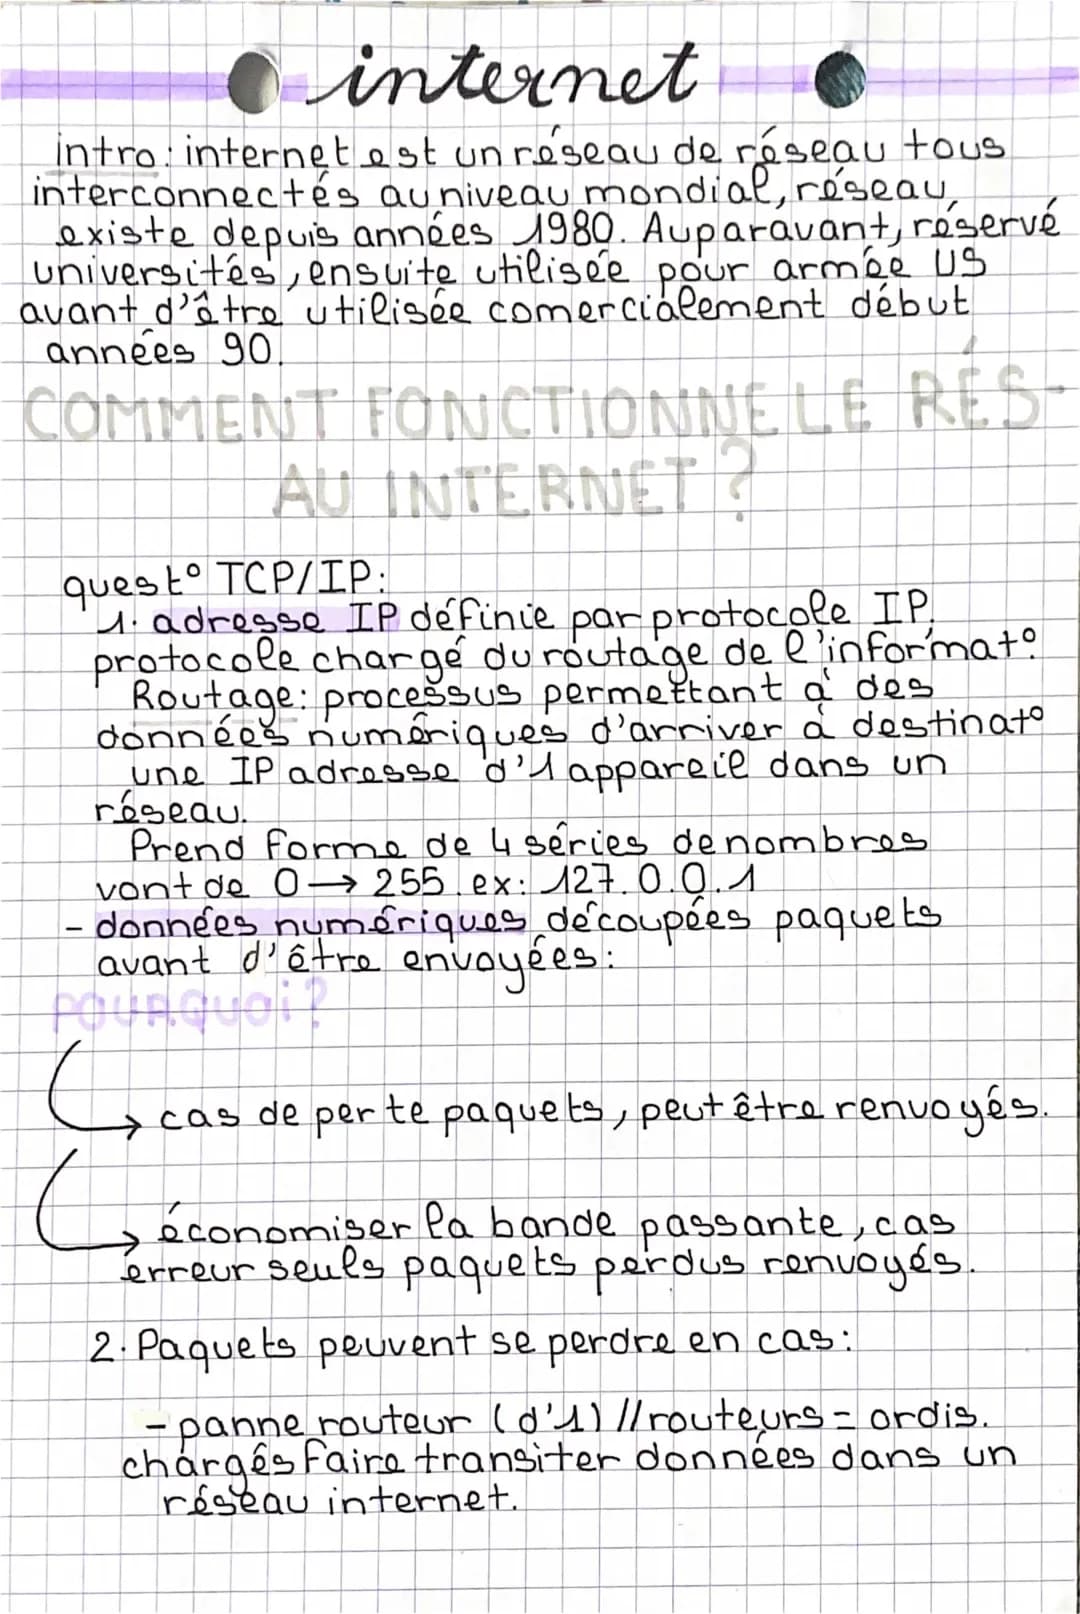 internet
intro: internet est un réseau de réseau tous
interconnectés au niveau mondial, réseau
existe depuis années 1980. Auparavant, réservé
universités, ensuite utilisée pour armée US
avant d'être utilisée comercialement début
années 90.
COMMENT FONCTIONNE LE RÉS-
AU INTERNET ?
quest° TCP/IP:
1. adresse IP définie par protocole IP.
protocole chargé du routage de l'informat°
Routage: processus permettant à des
données numériques d'arriver à destinat°
une IP adresse d'1 appareil dans un
réseau.
Prend forme de 4 séries de nombres
vont de 0 → 255. ex: 127.0.0.1
- données numériques découpées paquets
avant d'être envoyées:
POURQUOI ?
→ cas de perte paquets, peut être renvoyés.
→ économiser la bande passante, cas
erreur seuls paquets perdus renvoyés.
2. Paquets peuvent se perdre en cas:
- panne routeur (d'1) // routeurs = ordis.
chargés faire transiter données dans un
réseau internet.